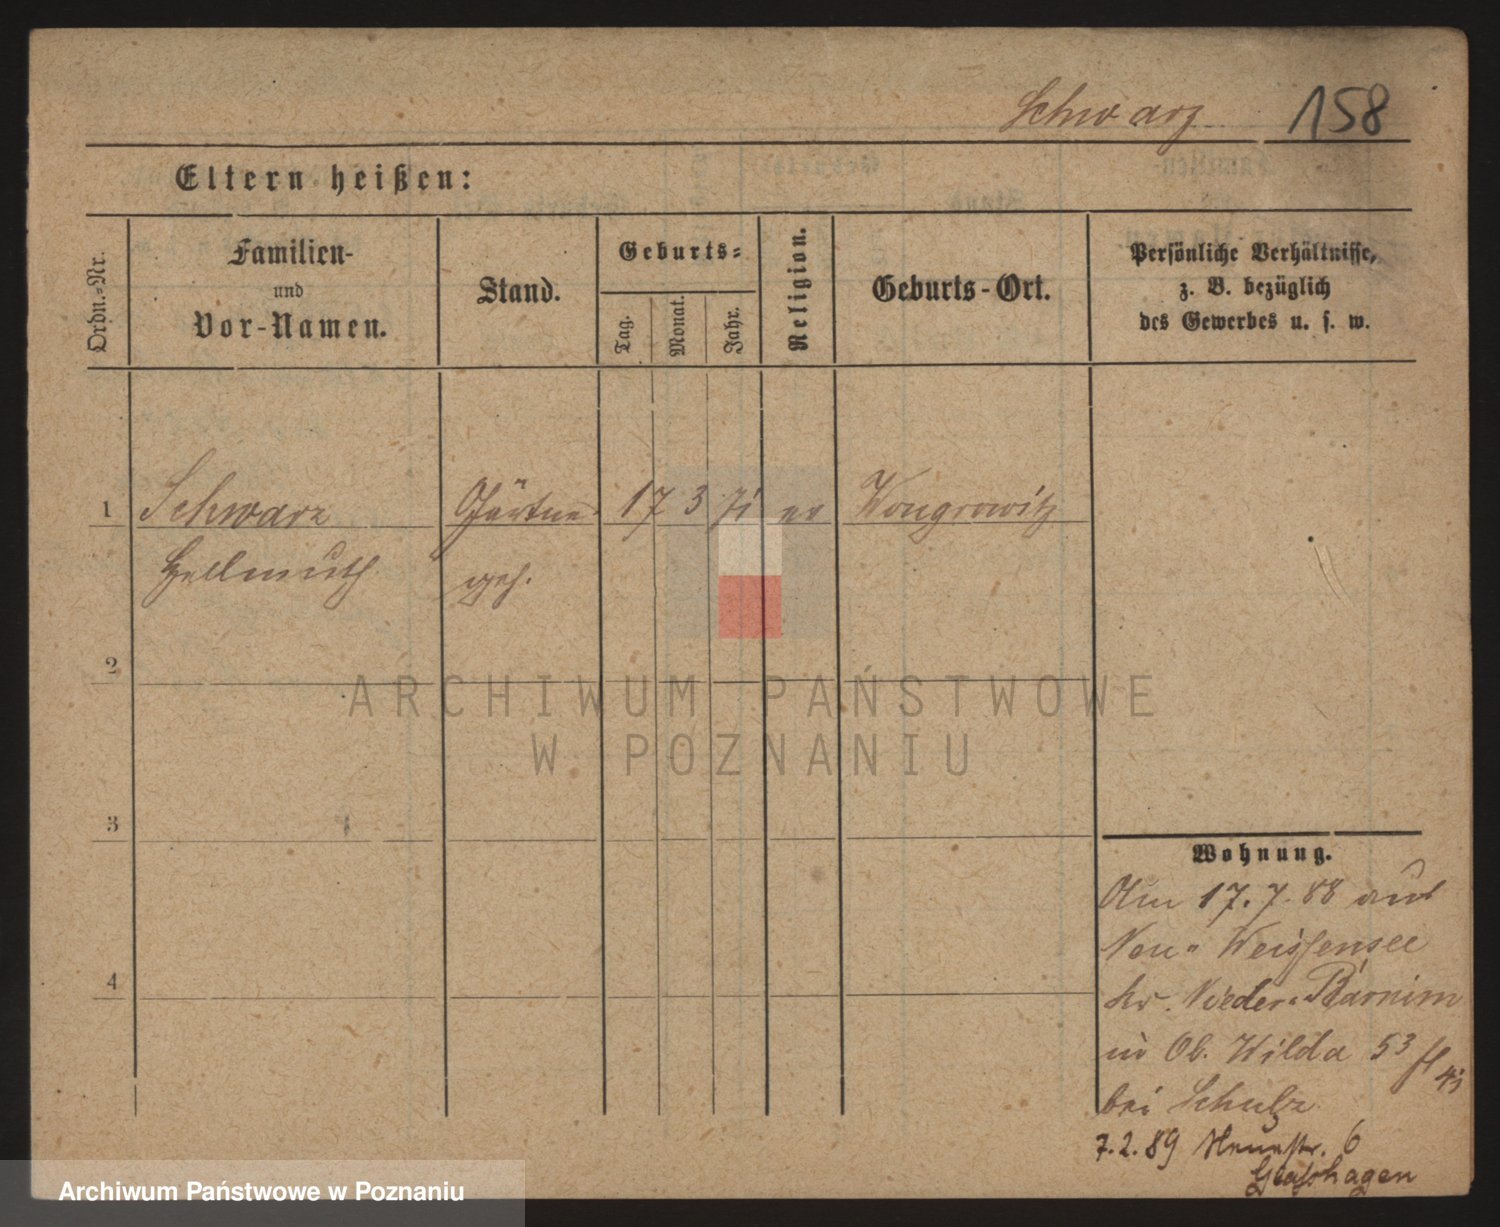 Schwarz 158
Eltern heißen:
Ordn.-Nr.
Familien-
und
Vor-Namen.
Stand.
Geburts-
Tag.
Monat.
Jahr.
Religion.
Geburts-Ort.
Persönliche Verhältnisse,
z. B. bezüglich
des Gewerbes u. s. w.
1 Schwarz Gärtner 17 3 71 ev Wongrowitz
Hellmuth geh.
2
3
4
ARCHIWUM PAŃSTWOWE
W POZNANIU
Wohnung.
Am 17.7.88 aus
Neu-Weissensee
Kr. Nieder-Barnim
in Ob. Wilda 53
bei Schulz
7.2.89 6
Archiwum Państwowe w Poznaniu